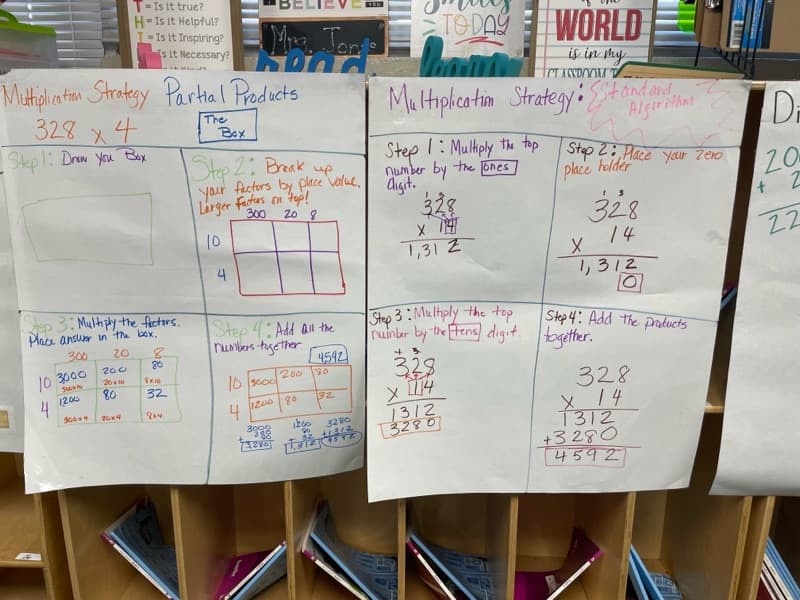 = Is it true?
H = Is it Helpful?
I = Is it Inspiring?
Is it Necessary?
BELIEVE
Mrs. Jon
read
TODAY
learn
WORLD
is in my
CLASSROOM
Multiplication Strategy Partial Products
328 x 4
The
Box
Step 1: Draw You Box
Step 2: Break up
your factors by place value.
Larger factors on top!
300 20 8
10
4
Step 3: Multiply the factors.
Place answer in the box.
300 20 8
10 3000 200 80
300x10 20x10 8x10
4 1200 80 32
300x4 20x4 8x4
Step 4: Add all the
numbers together
4592
10 3000 200 80
4 1200 80 32
3000 1200 3280
200 80 +1312
+ 80 + 32 4592
3280 1,312
Multiplication Strategy: Standard
Algorithm
Step 1: Multiply the top
number by the ones
digit.
1 3
328
x 14
1,312
Step 2: Place your zero
place holder
1 3
328
x 14
1,312
0
Step 3: Multiply the top
number by the tens digit.
328
x 114
1312
3280
Step 4: Add the products
together.
328
x 14
1312
+3280
4592
D
20
+ 2
22